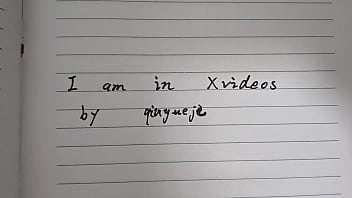 I am in Xvideos
by